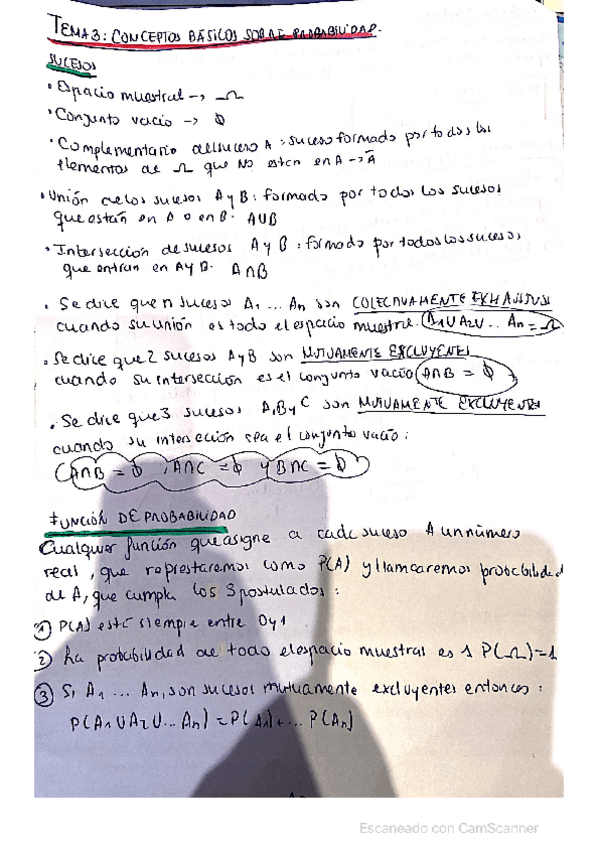 TEMA 3: CONCEPTOS BÁSICOS SOBRE PROBABILIDAD.
SUCESOS
• Espacio muestral → Ω
• Conjunto vacio → ∅
• Complementario del suceso A : suceso formado por todos los
elementos de Ω que NO estén en A → Ā
• Unión de los sucesos A y B : formado por todos los sucesos
que están en A o en B. A∪B
• Intersección de sucesos A y B : formado por todos los sucesos
que entran en A y B. A∩B
• Se dice que n sucesos A₁ ... An son COLECTIVAMENTE EXHAUSTIVOS
cuando su unión es todo el espacio muestral. (A₁∪A₂∪... An = Ω
• Se dice que 2 sucesos A y B son MUTUAMENTE EXCLUYENTES
cuando su intersección es el conjunto vacío (A∩B = ∅
• Se dice que 3 sucesos A, B y C son MUTUAMENTE EXCLUYENTES
cuando su intersección sea el conjunto vacío :
(A∩B = ∅ , A∩C = ∅ y B∩C = ∅)
FUNCIÓN DE PROBABILIDAD
Cualquier función que asigne a cada suceso A un número
real, que represtaremos como P(A) y llamaremos probabilidad
de A, que cumpla los 3 postulados :
① P(A) está siempre entre 0 y 1
② La probabilidad de todo el espacio muestras es 1 P(Ω)=1
③ Si A₁ ... An, son sucesos mutuamente excluyentes entonces :
P(A₁∪A₂∪... An) = P(A₁)+... P(An)
Escaneado con CamScanner